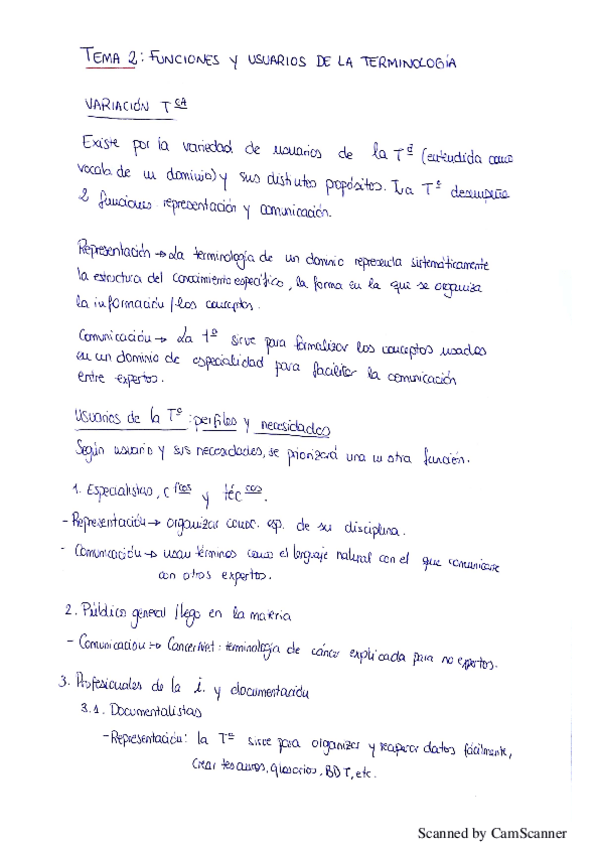 TEMA 2: FUNCIONES Y USUARIOS DE LA TERMINOLOGÍA
VARIACIÓN Tᶜᵃ
Existe por la variedad de usuarios de la Tª (entendida como
vocab. de un dominio) y sus distintos propósitos. La Tª desempeña
2 funciones representación y comunicación.
Representación → La terminología de un dominio representa sistemáticamente
la estructura del conocimiento específico, la forma en la que se organiza
la información / los conceptos.
Comunicación → La tª sirve para formalizar los conceptos usados
en un dominio de especialidad para facilitar la comunicación
entre expertos.
Usuarios de la Tª: perfiles y necesidades
Según usuario y sus necesidades, se priorizará una u otra función.
1. Especialistas, cᶠᶜᵒˢ y técᶜᵒˢ.
- Representación → organizar conoc. esp. de su disciplina.
- Comunicación → usan términos como el lenguaje natural con el que comunicarse
con otros expertos.
2. Público general / lego en la materia
- Comunicación → CancerNet: terminología de cáncer explicada para no expertos.
3. Profesionales de la i. y documentación
3.1. Documentalistas
- Representación: la Tª sirve para organizar y recuperar datos fácilmente,
crear tesauros, glosarios, BDT, etc.
Scanned by CamScanner